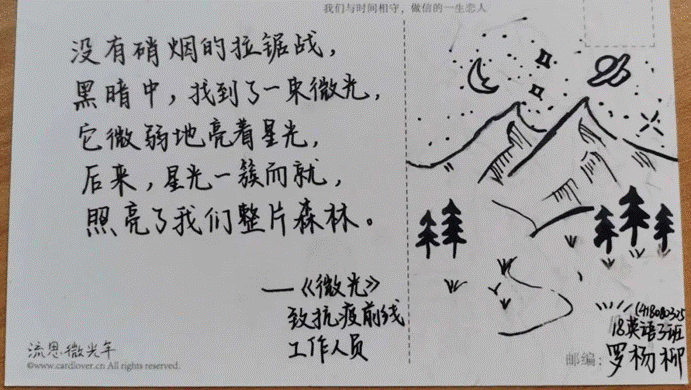 我们与时间相守，做信的一生恋人
没有硝烟的拉锯战，
黑暗中，找到了一束微光，
它微弱地亮着星光，
后来，星光一簇而就，
照亮了我们整片森林。
——《微光》
致抗疫前线
工作人员
流恩微光年
©www.cardlover.cn All rights reserved.
1418080325
18英语3班
邮编：罗杨柳